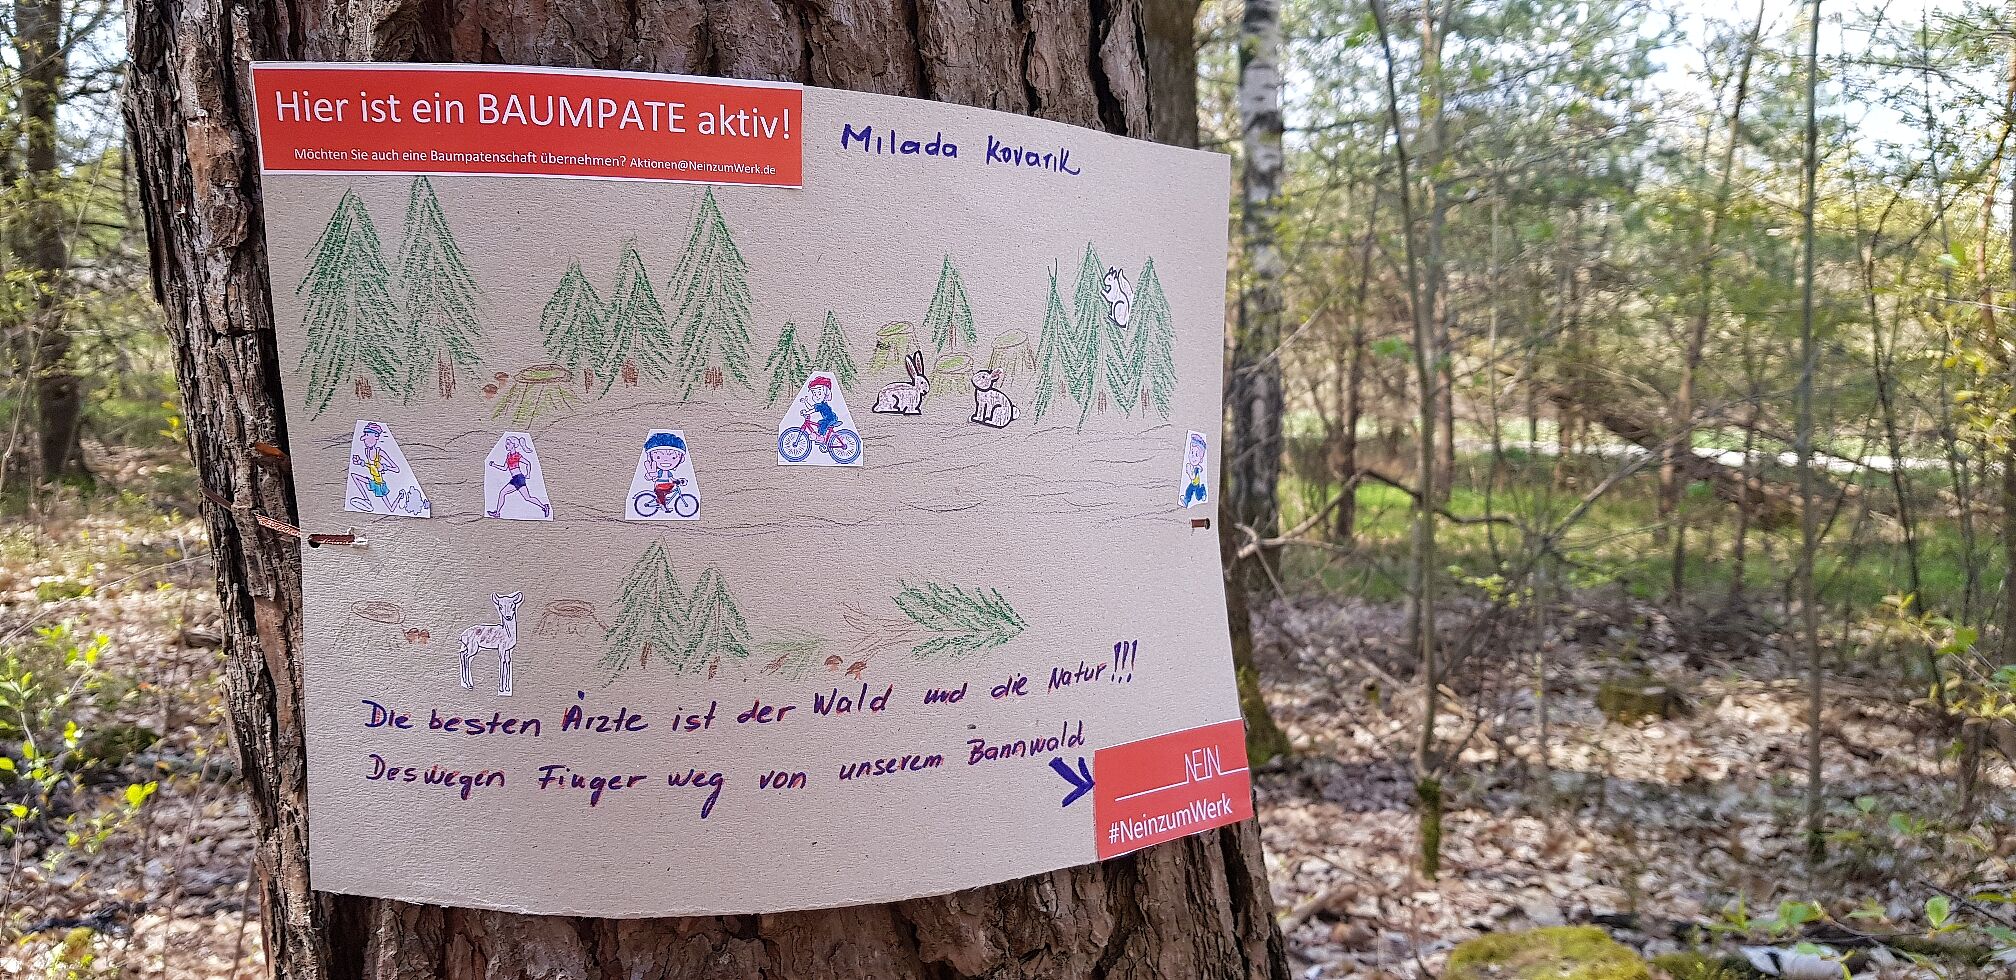 Hier ist ein BAUMPATE aktiv!
Möchten Sie auch eine Baumpatenschaft übernehmen? Aktionen@NeinzumWerk.de
Milada Kovarik
Die besten Ärzte ist der Wald und die Natur!!!
Deswegen Finger weg von unserem Bannwald
NEIN
#NeinzumWerk